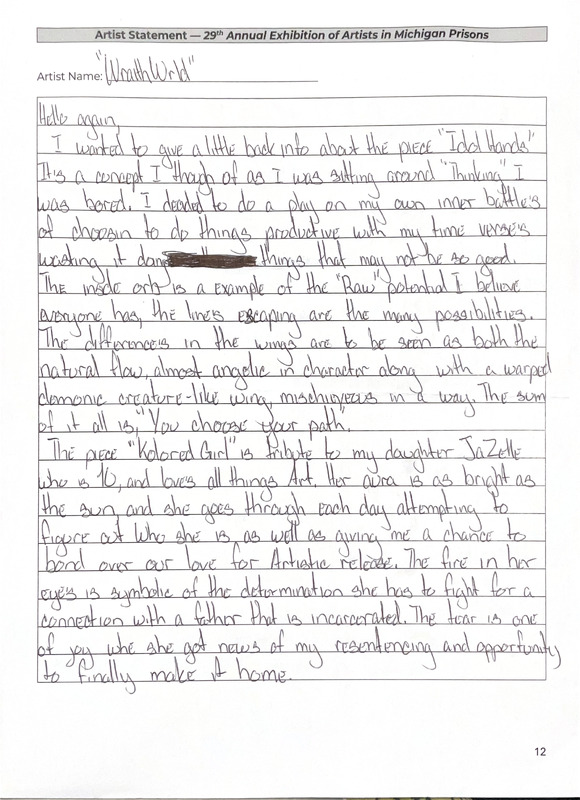 Artist Statement — 29th Annual Exhibition of Artists in Michigan Prisons
Artist Name: "WraithWrld"
Hello again,
I wanted to give a little back info about the piece "Idol Hands"
It's a concept I though of as I was sitting around "Thinking" I
was bored. I decided to do a play on my own inner battle's
of choosin to do things productive with my time verse's
wasting it doing things that may not be so good.
The inside orb is a example of the "Raw" potential I believe
everyone has, the line's escaping are the many possibilities.
The difference's in the wings are to be seen as both the
natural flow, almost angelic in character along with a warped
demonic creature-like wing, mischieveous in a way. The sum
of it all is, "You choose your path".
The piece "Kolored Girl" is tribute to my daughter JaZelle
who is 16, and love's all things Art. Her aura is as bright as
the sun, and she goes through each day attempting to
figure out who she is, as well as giving me a chance to
bond over our love for Artistic release. The fire in her
eye's is symbolic of the determination she has to fight for a
connection with a father that is incarcerated. The tear is one
of joy whe she got news of my resentencing and opportunity
to finally make it home.
12